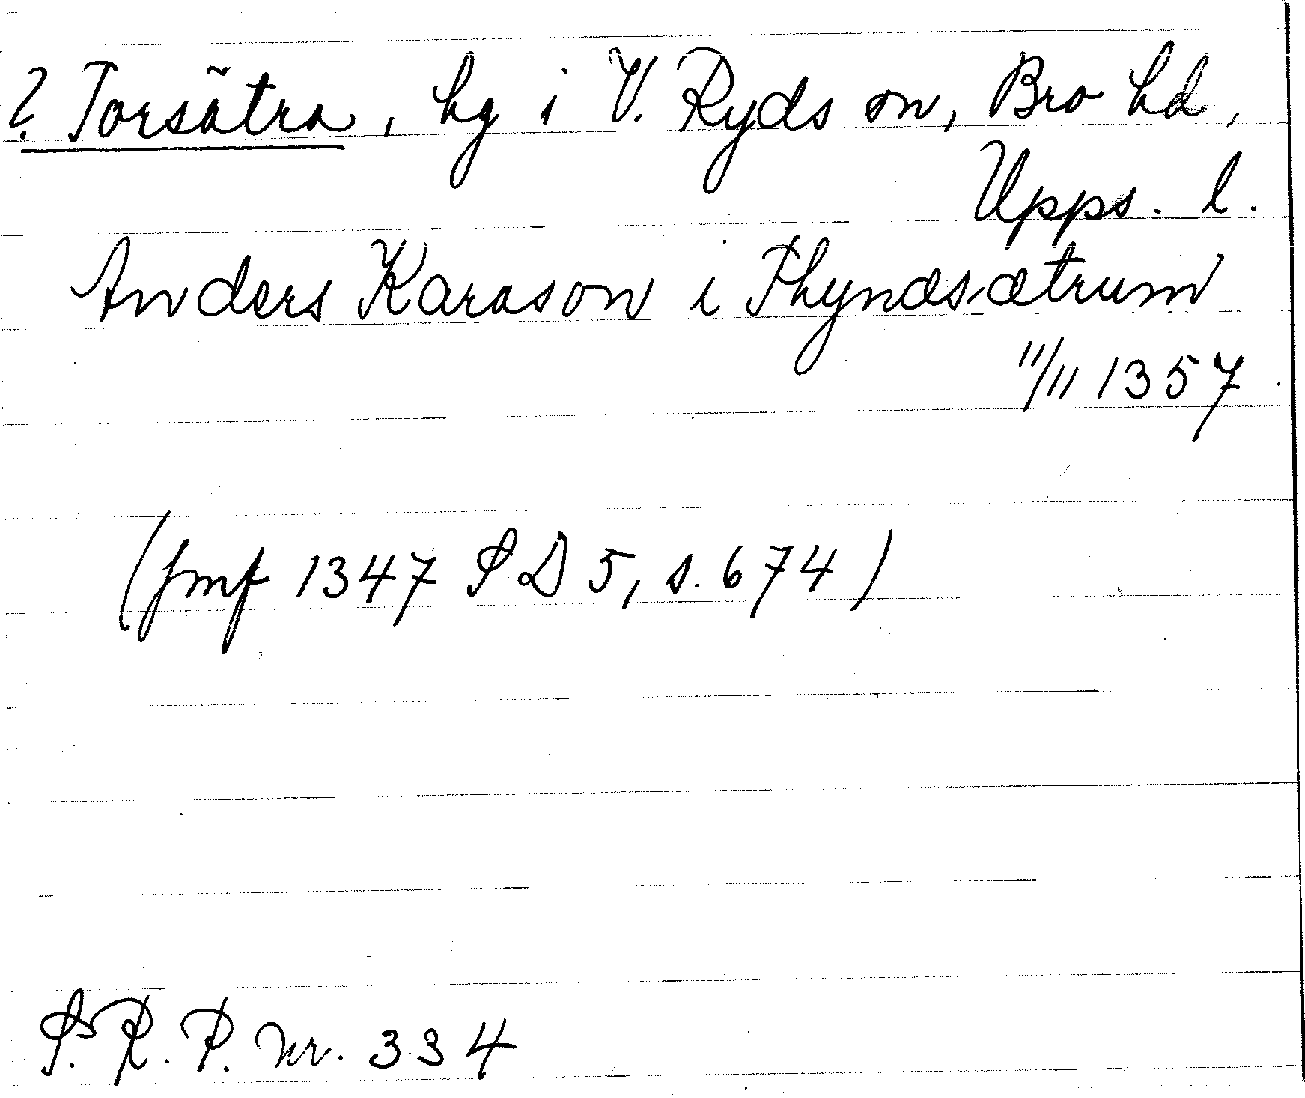 ? Torsätra, hg i V. Ryds sn, Bro hd,
Upps. l.
Anders Karason i Thyndsætrum
11/11 1357.
(jmf 1347 SD 5, s. 674)
S. R. P. nr. 334